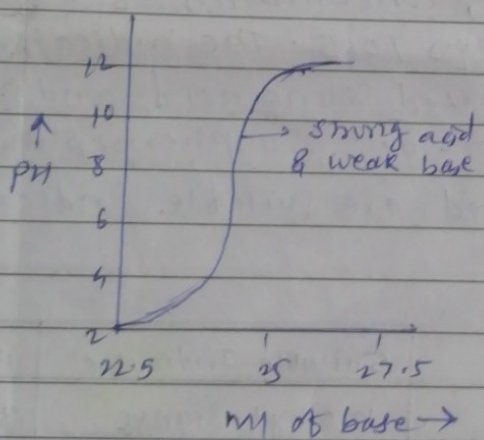 12
10
↑
PH
8
6
4
2
→ strong acid
& weak base
22.5
25
27.5
ml of base →